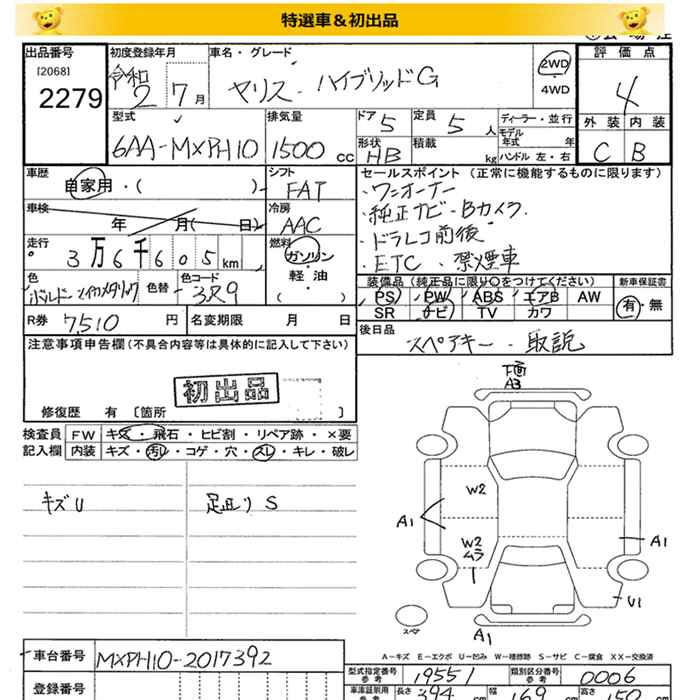 特選車＆初出品
出品番号
[2068]
2279
初度登録年月
令和
2 7月
車名・グレード
ヤリス・ハイブリッドG
2WD
4WD
評価点
4
外装 内装
C B
型式
6AA-MXPH10
排気量
1500 cc
ドア 5
定員 5人
形状 HB
積載 kg
ディーラー・並行
モデル年式 年
ハンドル 左・右
車歴
自家用・( )
シフト
FAT
車検
年 月( 日)
冷房
AAC
走行
3万6千605km
燃料
ガソリン
軽・油
( )
色
ボルドーマイカメタリック
色替
色コード
3R9
セールスポイント（正常に機能するものに限ります）
・ワンオーナー
・純正ナビ・Bカメラ
・ドラレコ前後
・ETC ・禁煙車
装備品（純正品に限り○をつけてください）
新車保証書
PS PW ABS エアB AW
SR ナビ TV カワ
有・無
R券 7,510円
名変期限 月 日
後日品
スペアキー・取説
注意事項申告欄（不具合内容等は具体的に記入して下さい）
初出品
修復歴 有 〔箇所 〕
検査員記入欄
FW キズ・飛石・ヒビ割・リペア跡・×要
内装 キズ・汚レ・コゲ・穴・スレ・キレ・破レ
キズU
足廻りS
下面
A3
W2
A1
W2
ムラ
A1
U1
スペア
A1
A－キズ E－エクボ U－凹み W－補修跡 S－サビ C－腐食 XX－交換済
車台番号 MXPH10-2017392
登録番号
型式指定番号 参考 19551
類別区分番号 参考 0006
車庫証明用 参考 長さ 394 cm 幅 169 cm 高さ 150 cm